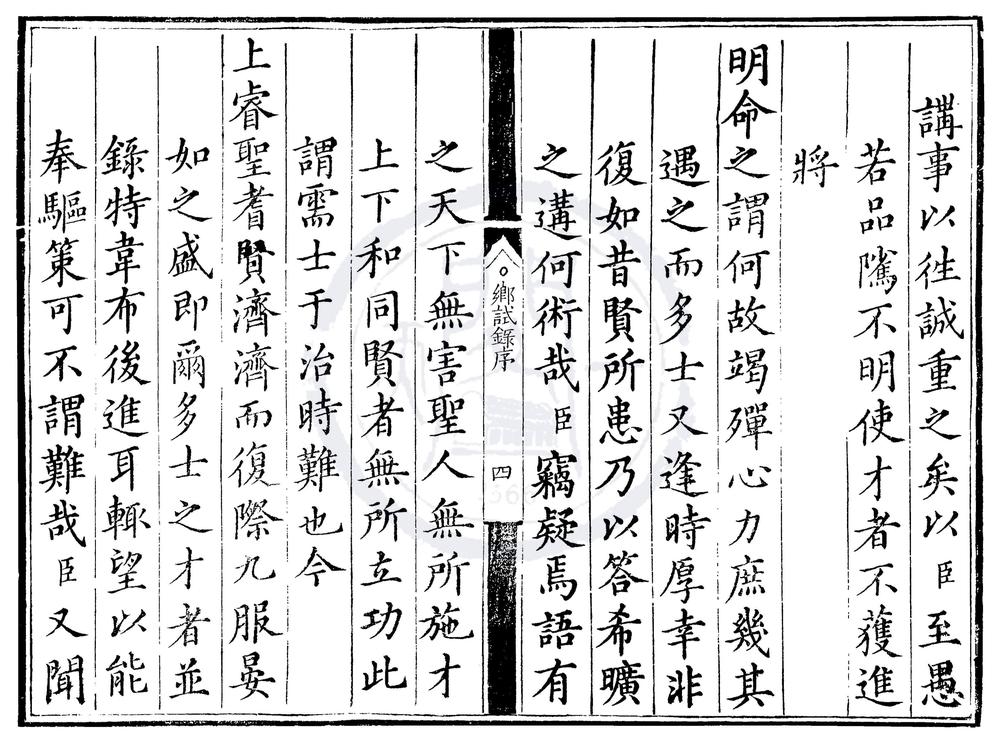 講事以徃誠重之矣以臣至愚
若品隲不明使才者不獲進
將
明命之謂何故竭殫心力庶幾其
遇之而多士又逢時厚幸非
復如昔賢所患乃以答希曠
之遘何術哉臣竊疑焉語有
鄉試錄序
四
之天下無害聖人無所施才
上下和同賢者無所立功此
謂需士于治時難也今
上睿聖耆賢濟濟而復際九服晏
如之盛即爾多士之才者並
錄特韋布後進耳輙望以能
奉驅策可不謂難哉臣又聞